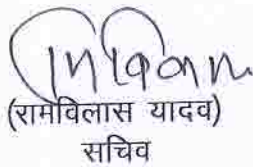 (रामविलास यादव)
सचिव